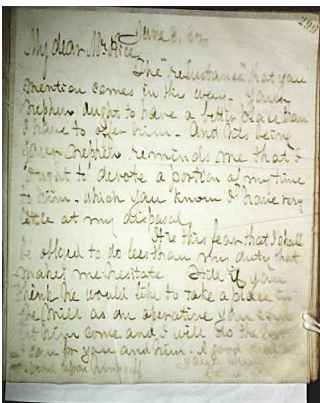 299
June 3, 62
My dear Mr Rice
The "reluctance" that you
mention comes in this way. Your
Nephew ought to have a better place than
I have to offer him. And his being
your Nephew reminds me that I
ought to devote a portion of my time
to him. Which you know I have very
little at my disposal
It is this fear that I shall
be obliged to do less than my duty that
makes me hesitate Still if you
think he would like to take a place in
the Mill as an operative you can
let him come and I will do the best
I can for you and him. A good
upon himself
Yours